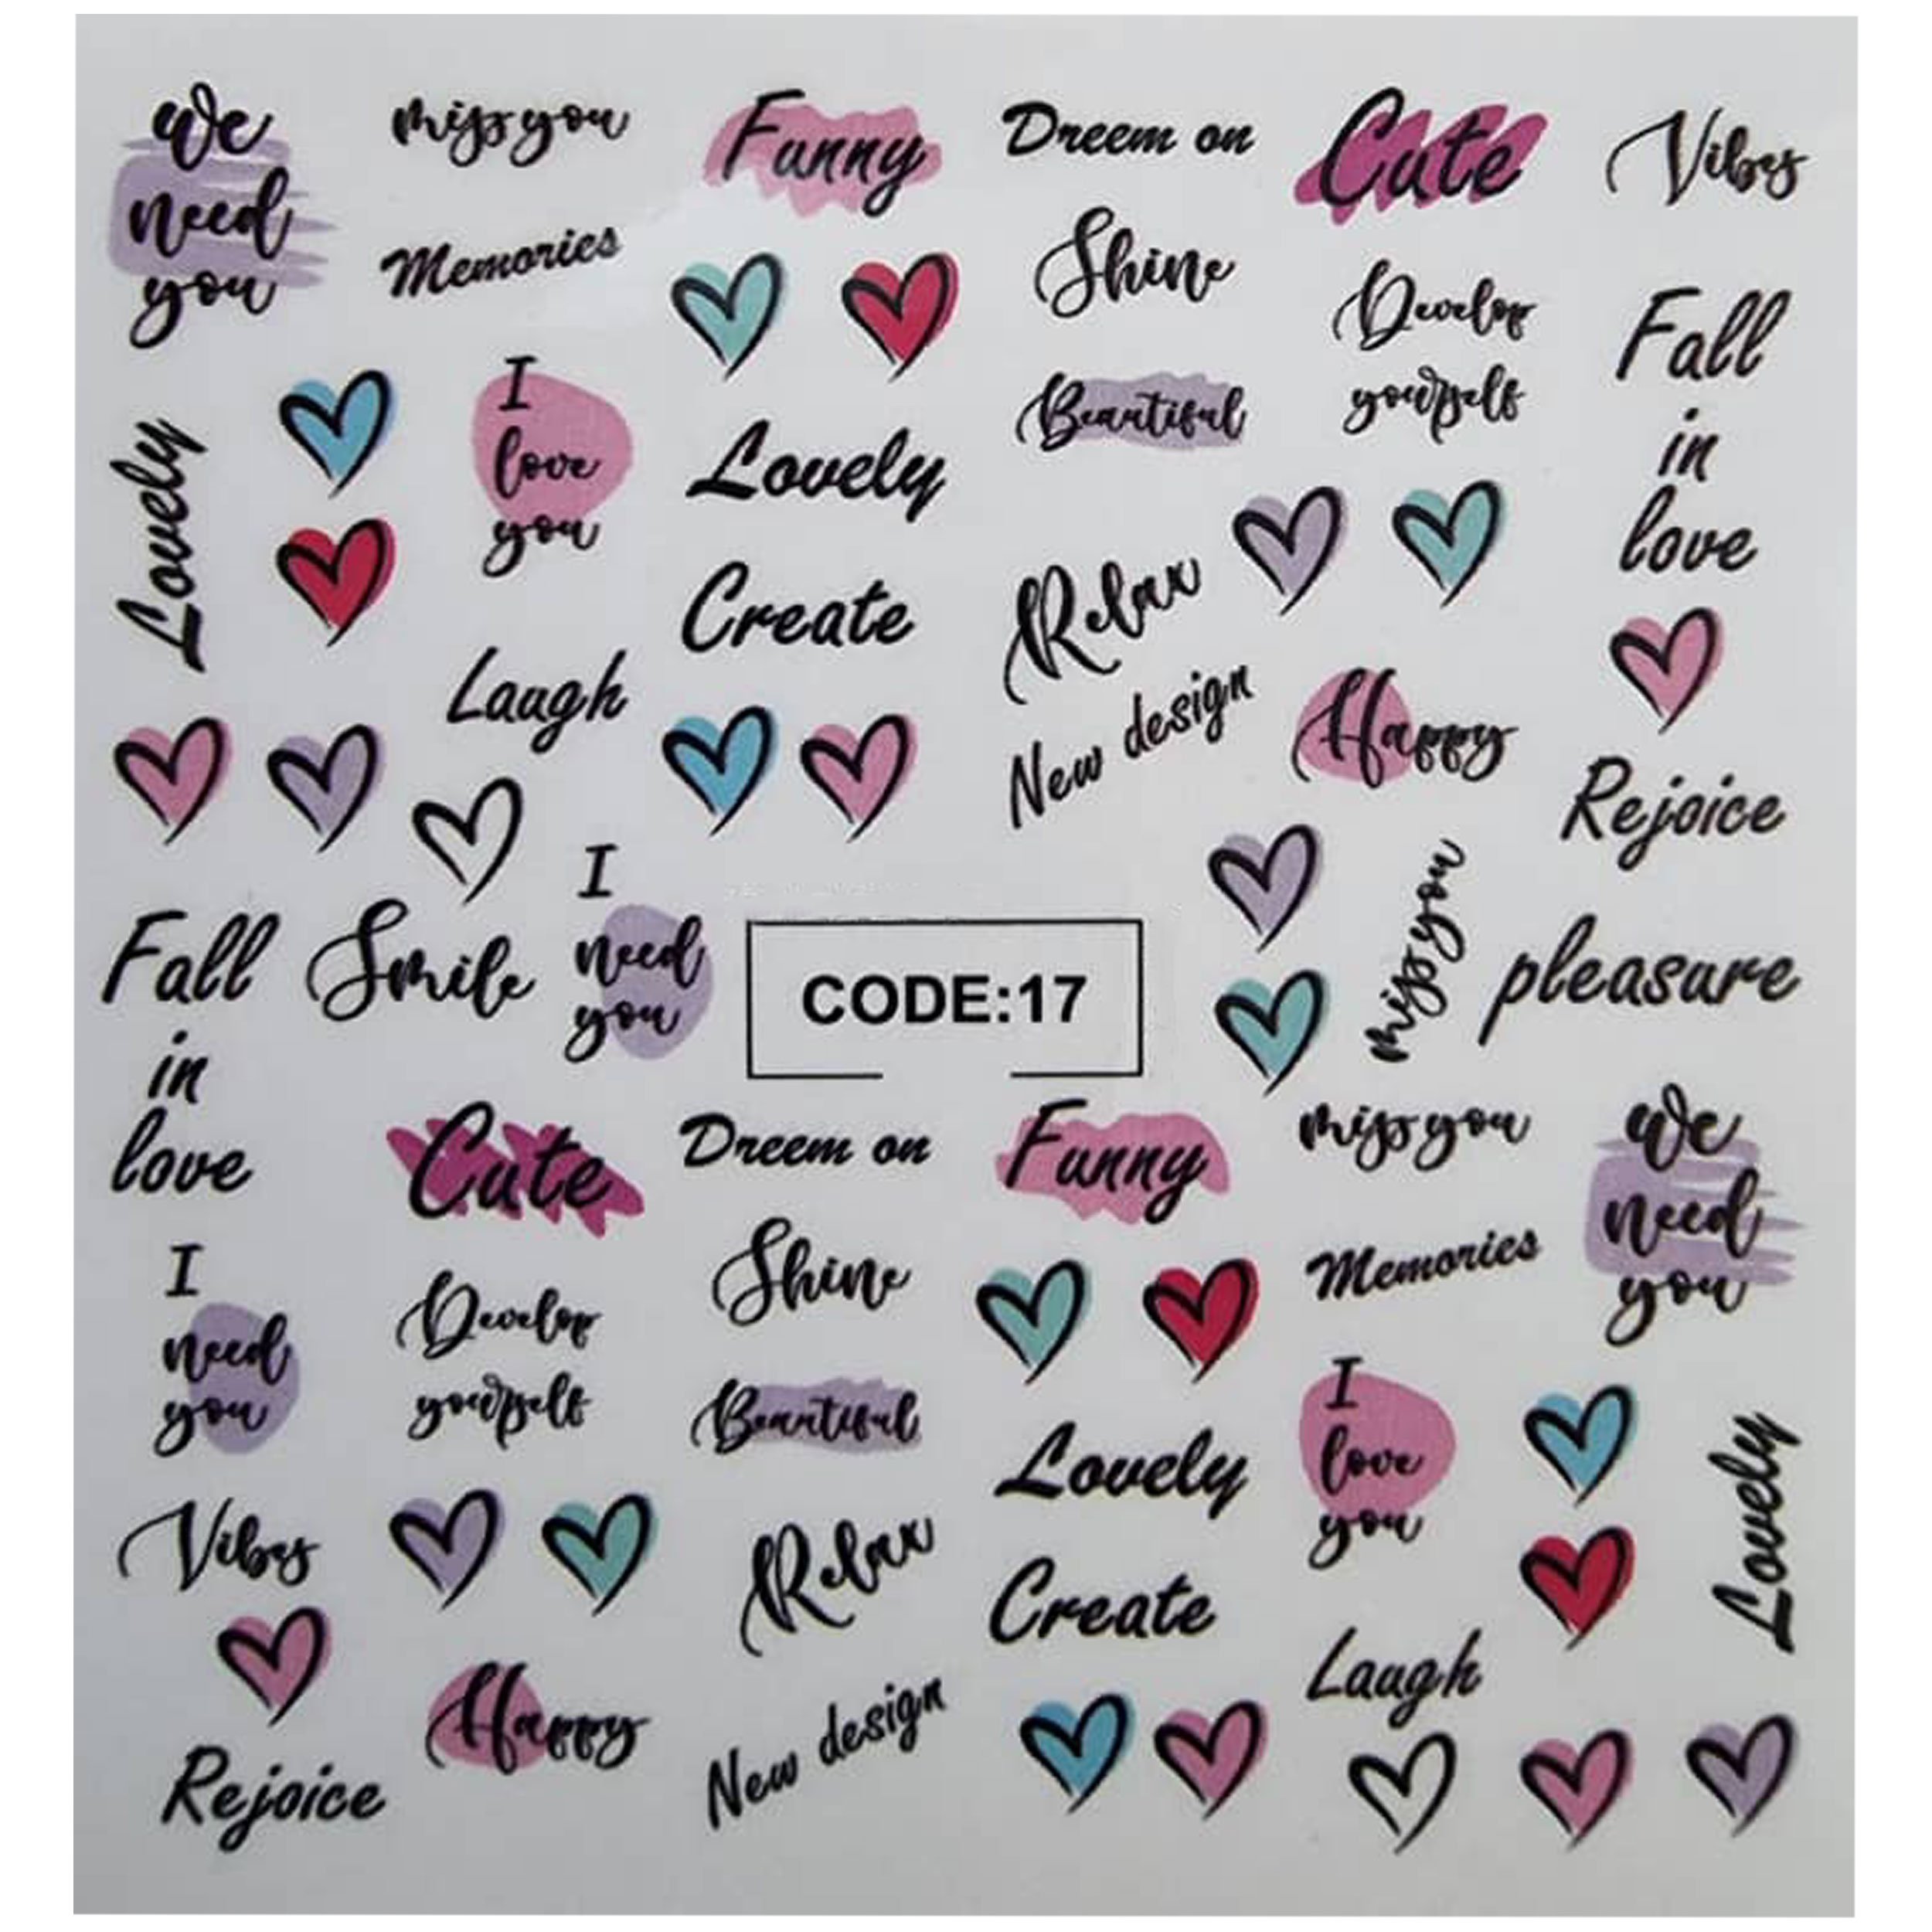 we
need
you
miss you
Memories
Funny
Dreem on
Shine
Cute
Vibes
Develop
yourself
Beautiful
Fall
in
love
Lovely
I
love
you
Lovely
Create
Relax
New design
Laugh
Happy
Rejoice
Fall
in
love
Smile
I
need
you
CODE:17
miss you
pleasure
Cute
Dreem on
Funny
miss you
we
need
you
Memories
I
need
you
Develop
yourself
Shine
Beautiful
Lovely
I
love
you
Lovely
Vibes
Relax
Create
Laugh
Happy
New design
Rejoice